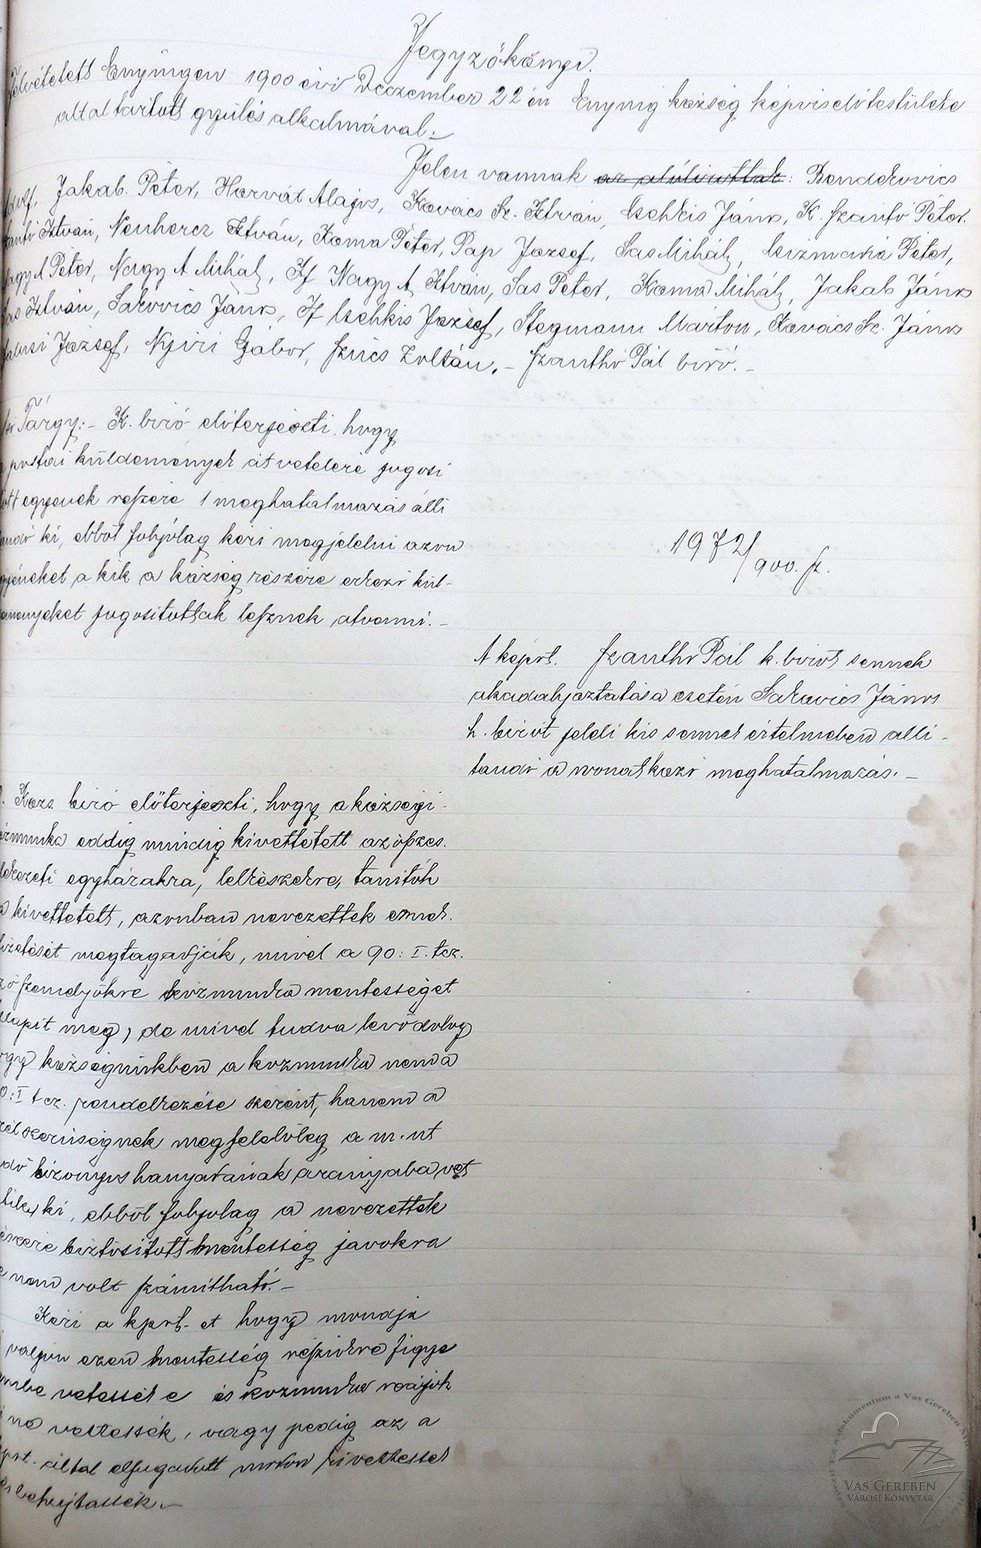 Jegyzőkönyv.
Felvétetett Enyingen 1900 évi Deczember 22 én Enying község képviselőtestülete
által tartott gyűlés alkalmával.-
Jelen vannak: Benderovics
Jakab Péter, Horvát Alajos, Kovács Sz. István, Csehkis János, K. Szántó Péter
István, Neuhercz István, Kama Péter, Pap József, Sas Mihály, Csizmazia Péter,
Nagy A Péter, Nagy A Mihály, If Nagy A István, Sas Péter, Kama Mihály, Jakab János
István, Sakovics János, If Csehkis József, Stegmann Márton, Kovács Sz. János
József, Nyiri Gábor, Szücs Zoltán.- Szanthó Pál biró.-
Tárgy:- K. biró előterjeszti, hogy
postai küldemények átvételére jogosi
tott egyének részére 1 meghatalmazás álli
tandó ki, ebből folyólag kéri megjelelni azon
egyéneket a kik a község részére érkező kül-
deményeket jogositottak lesznek átvenni.-
1972/900. sz.
A képvt. Szanthó Pál k. birót ennek
akadályoztatása esetén Sakovics János
h. birót jelöli kis ennek értelmében álli-
tandó a vonatkozó meghatalmazás.-
Közs biró előterjeszti, hogy a községi
közmunka eddig mindig kivettetett az összes
felekezeti egyházakra, lelkészekre, tanitók
a kivettetett, azonban nevezettek ennek
fizetését megtagadják, mivel a 90: I. tcz.
személyökre közmunka mentességet
állapit meg, de mivel tudva levő dolog
hogy községünkben a közmunka nem a
90: I tcz. rendelkezése szerint, hanem a
czélszerüségnek megfelelőleg a m. ut
adó bizonyos hanyadának arányába vet
tik ki, ebből folyolag a nevezettek
részére biztósitott mentesség javokra
nem volt számitható.-
Kéri a kpvt.-et hogy mondja
valjon ezen mentesség részükre figye
lembe vetessék e és közmunka reájok
ne vettessék, vagy pedig az a
kpvt. által elfogadott módon kivettessék
behajtassék.-
VAS GEREBEN
VÁROSI KÖNYVTÁR